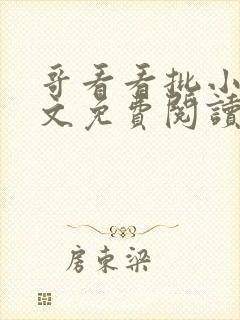 哥看看批小
文免費閱讀
房東梁